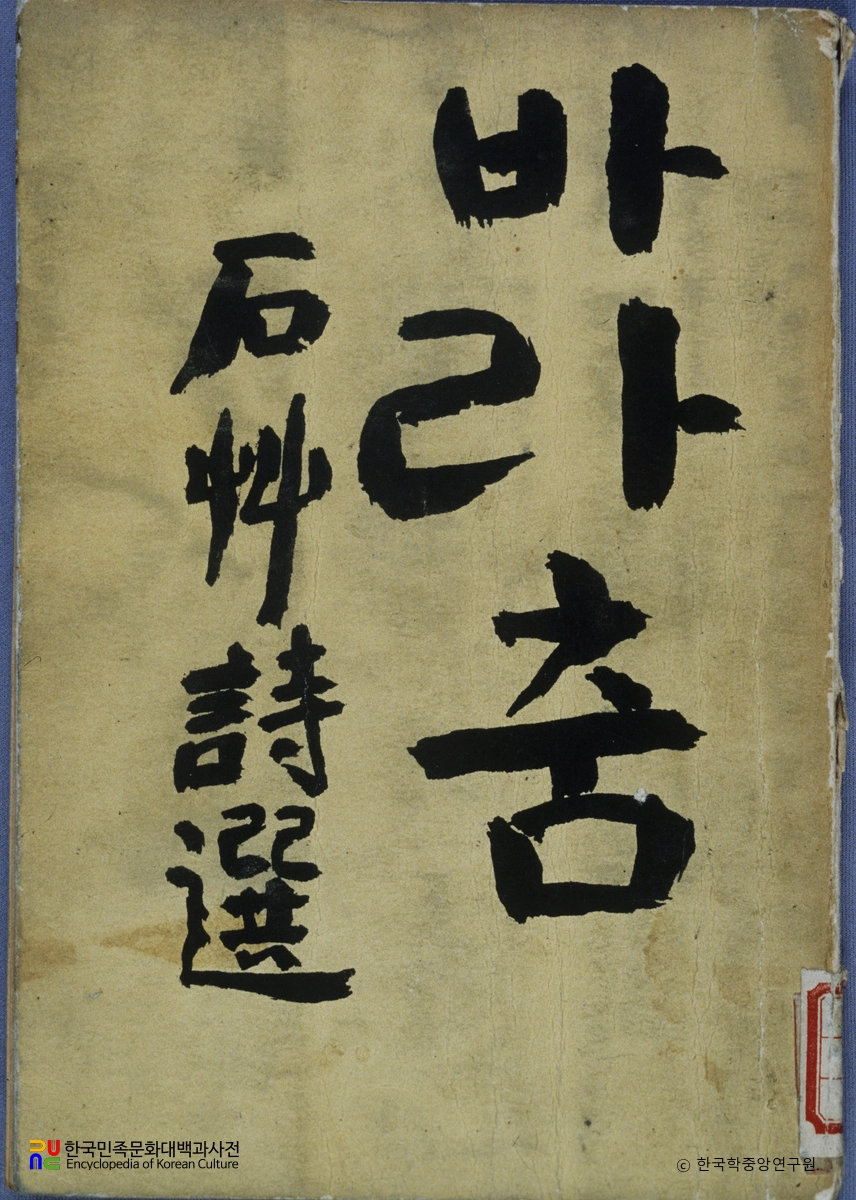 바라춤
石艸詩選
한국민족문화대백과사전
Encyclopedia of Korean Culture
© 한국학중앙연구원